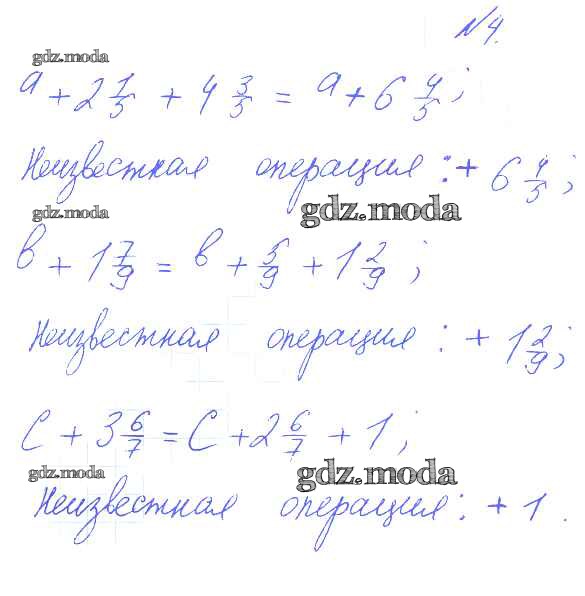 N4.
gdz.moda
a + 2 1/5 + 4 3/5 = a + 6 4/5;
Неизвестная операция: + 6 4/5;
gdz.moda gdz.moda
в + 1 7/9 = в + 5/9 + 1 2/9;
Неизвестная операция: + 1 2/9;
C + 3 6/7 = C + 2 6/7 + 1;
gdz.moda gdz.moda
Неизвестная операция: + 1.